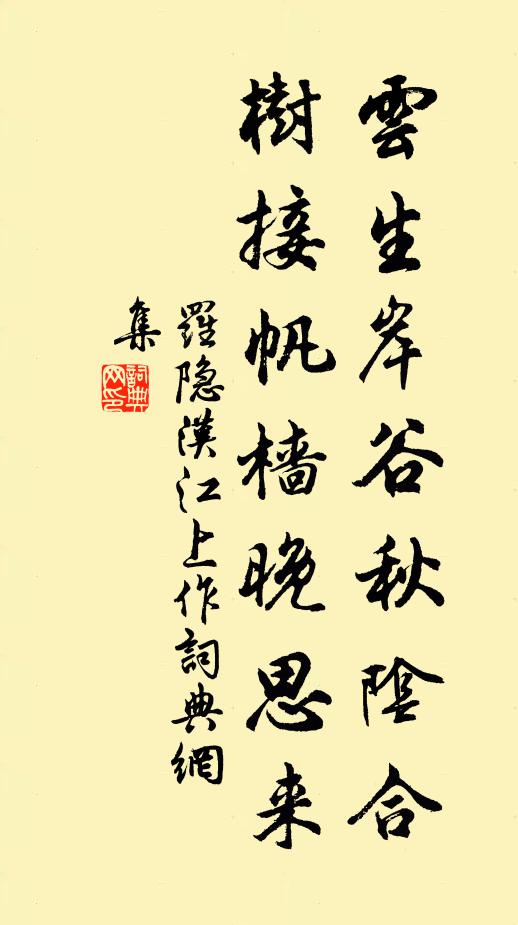 雲生岸谷秋陰合
樹接帆檣晚思来
羅隐漢江上作詞典網
集
詞典
网印